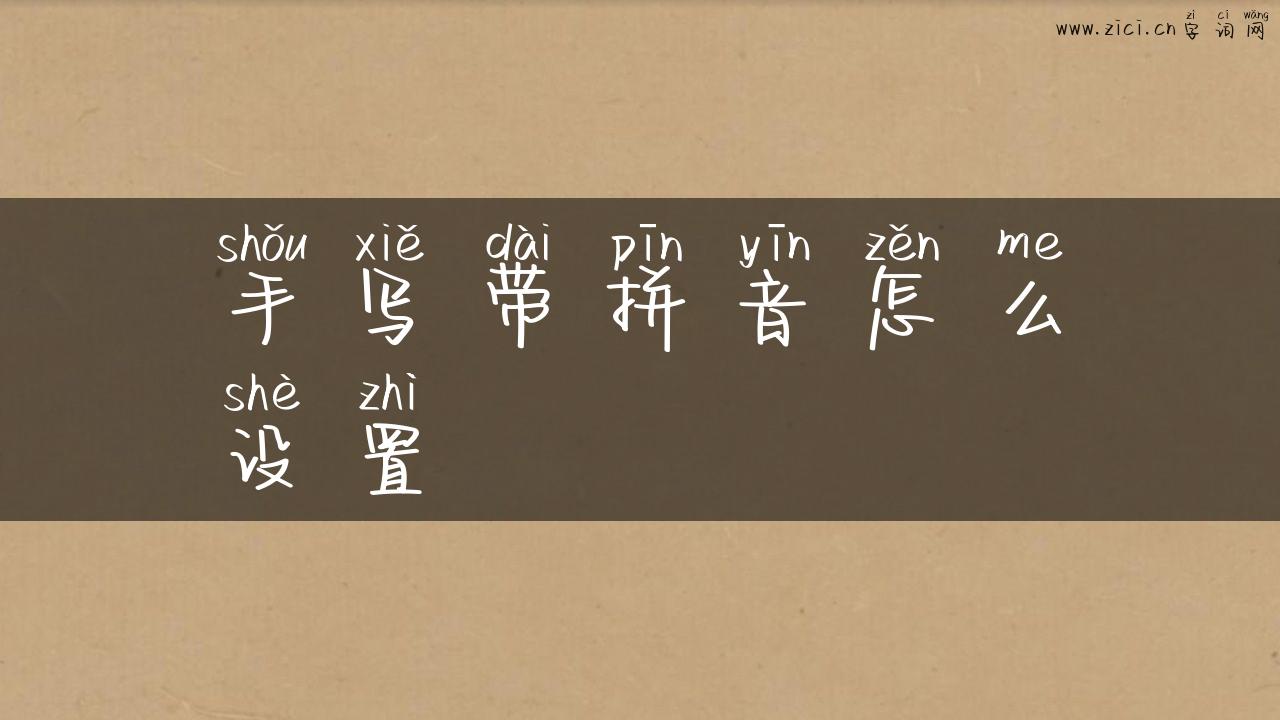 zì cí wǎng
www.zici.cn 字词网
shǒu xiě dài pīn yīn zěn me
手写带拼音怎么
shè zhì
设置